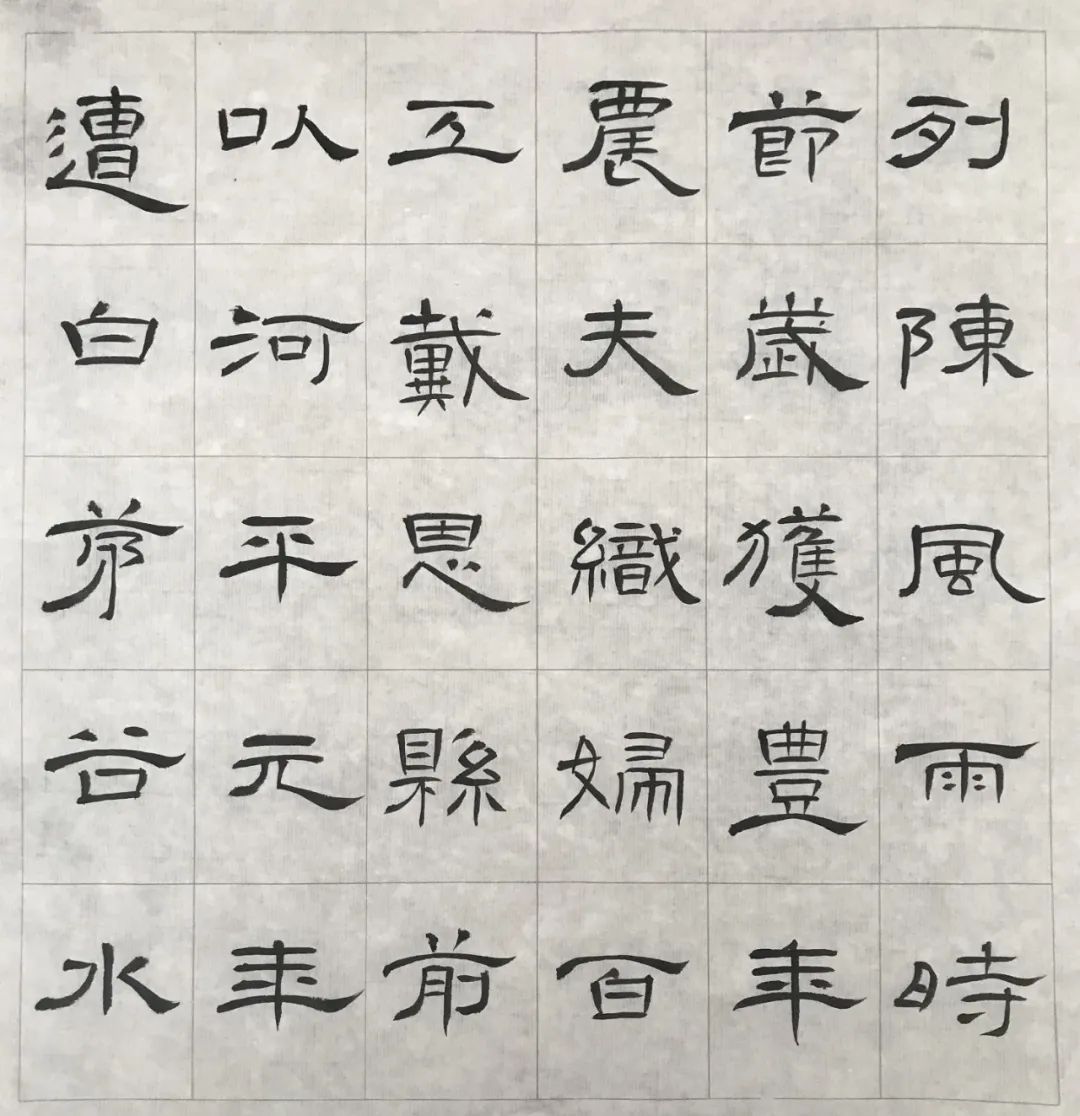 列陳風雨時
節歲獲豐年
農夫織婦百
工戴恩縣前
以河平元年
遭白茅谷水